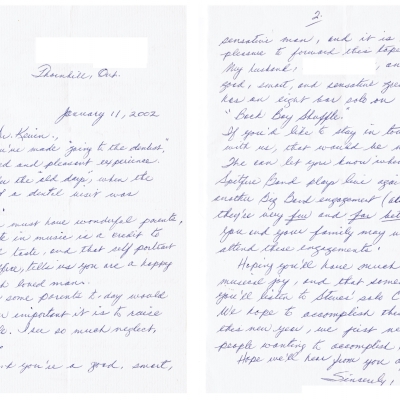 Thornhill, Ont.
January 11, 2002
Dr. Kevin,
you've made "going to the dentist,"
and pleasant experience.
the "old days," when the
a dentist visit was
must have wonderful parents,
in music is a credit to
taste, and that self portrait
tells us you are a happy
loved man.
some parents to-day would
important it is to raise
I see so much neglect,
you're a good, smart,
2.
sensitive man, and it is
pleasure to forward this tape
My husband,
good, smart, and sensitive
has an eight bar solo on
"Back Bay Shuffle."
If you'd like to stay in
with us, that would be
We can let you know when
Spitfire Band plays live
another Big Band engagement
they're very few and far
You and your family may
attend these engagements.
Hoping you'll have much
musical joy, and that
you'll listen to Steve's solo
We hope to accomplish
this new year, we first
people wanting to accomplish
Hope we'll hear from you
Sincerely,